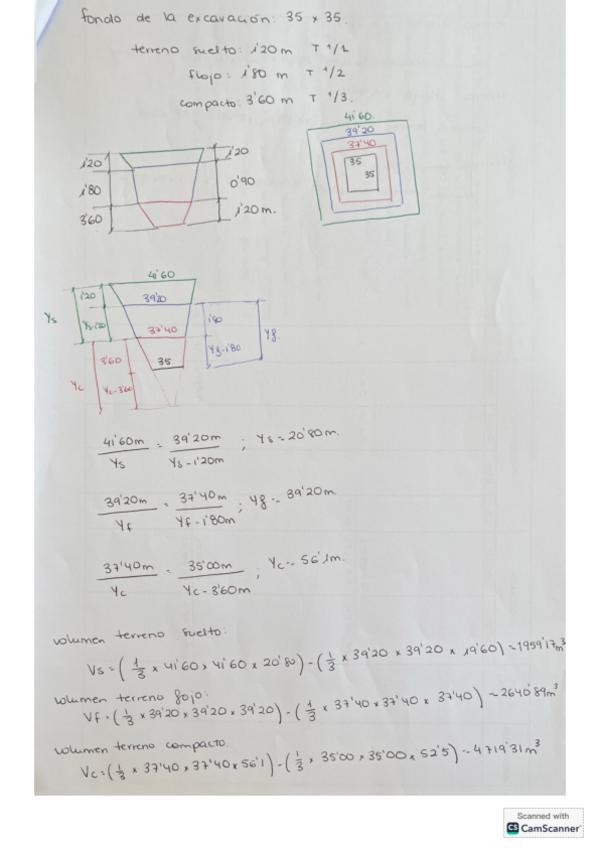 fondo de la excavación: 35 x 35.
terreno suelto: 1'20 m T 1/1
flojo: 1'80 m T 1/2
compacto: 3'60 m T 1/3.
41'60
39'20
37'40
35
35
1'20
1'80
3'60
1'20
0'90
1'20m.
41'60
39'20
37'40
35
Ys
1'20
Ys-1'20
Yc
3'60
Yc-3'60
1'80
Yf-1'80
Yf
41'60m / Ys = 39'20m / Ys-1'20m ; Ys = 20'80m.
39'20m / Yf = 37'40m / Yf-1'80m ; Yf = 39'20m.
37'40m / Yc = 35'00m / Yc-3'60m ; Yc = 56'1m.
volumen terreno suelto:
Vs = (1/3 x 41'60 x 41'60 x 20'80) - (1/3 x 39'20 x 39'20 x 19'60) = 1959'17m³
volumen terreno flojo:
Vf = (1/3 x 39'20 x 39'20 x 39'20) - (1/3 x 37'40 x 37'40 x 37'40) = 2640'89m³
volumen terreno compacto.
Vc = (1/3 x 37'40 x 37'40 x 56'1) - (1/3 x 35'00 x 35'00 x 52'5) = 4719'31m³
Scanned with
CS CamScanner